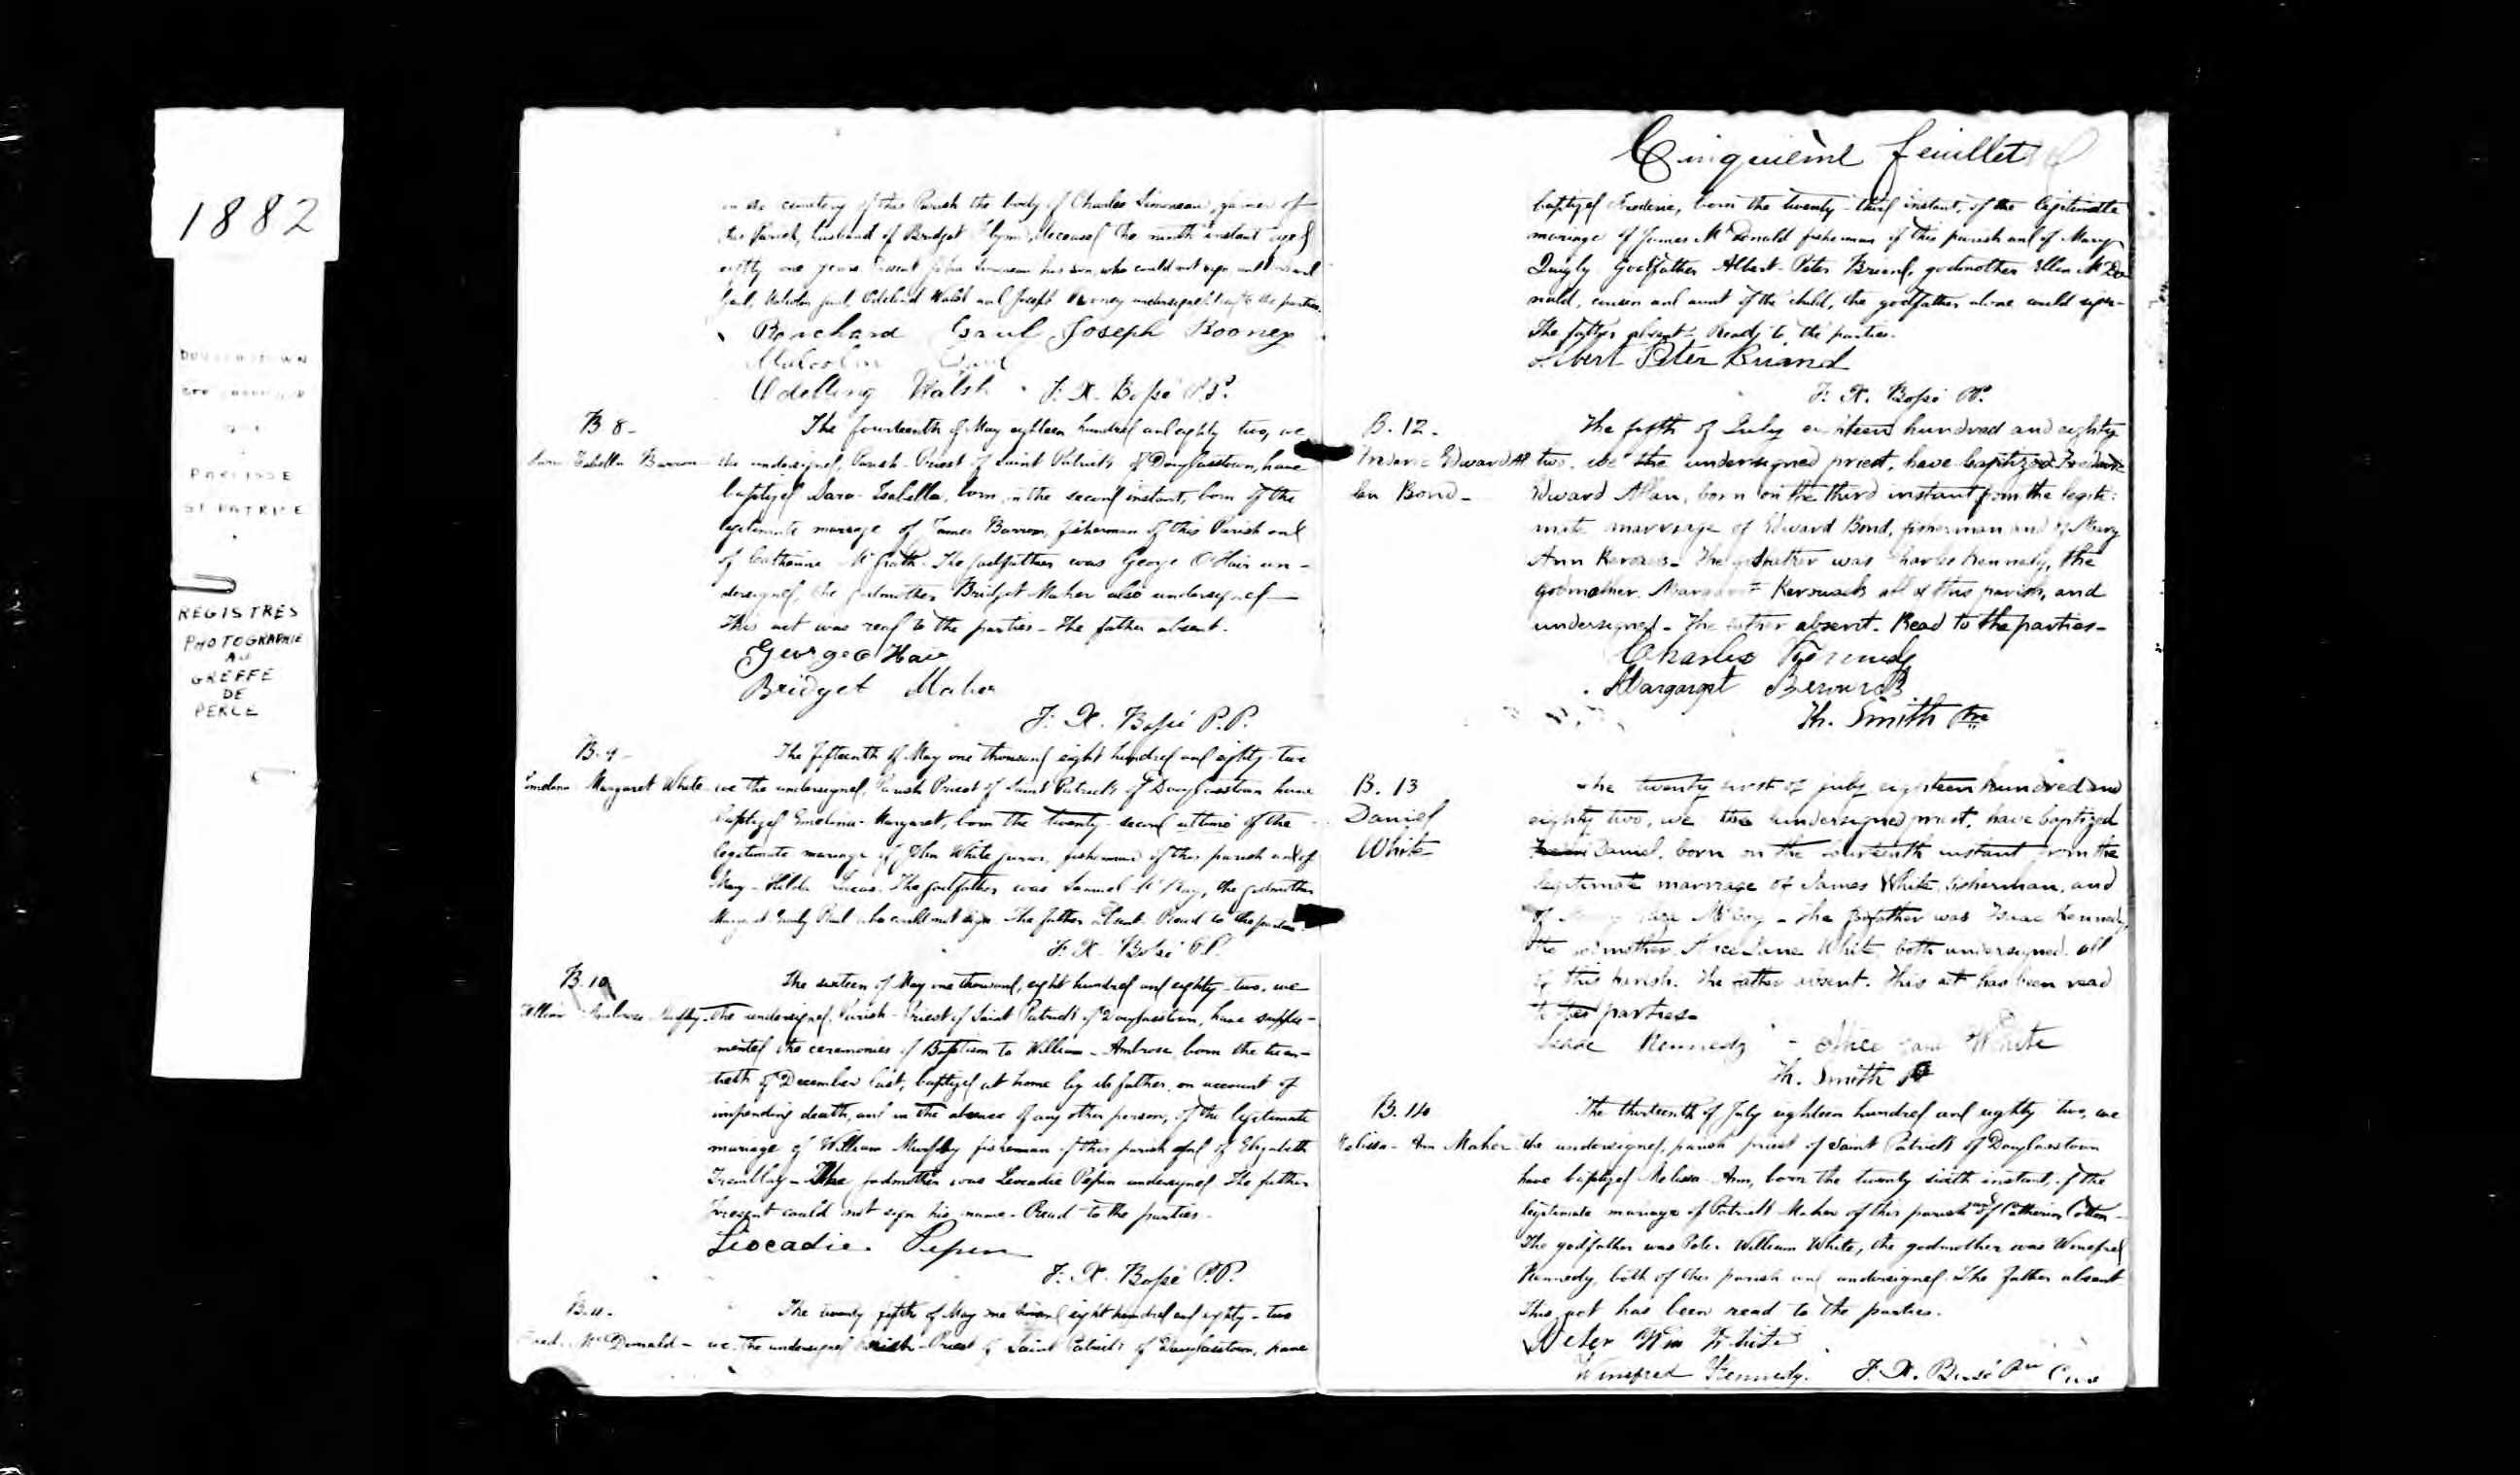 1882
PAROISSE
ST PATRICE
REGISTRES
PHOTOGRAPHIE
AU
GREFFE
DE
PERCE
in the cemetery of this Parish the body of Charles Simoneau, of
this Parish, husband of Bridget Flynn, deceased the ninth instant aged
eighty one years. Present John Simoneau his son, who could not sign, and
Gaul, Malcolm Gaul, Walsh and Joseph Rooney undersigned. the parties.
Gaul Joseph Rooney
Malcolm Gaul
Walsh F. X. Bossé P.P.
B. 8 -
The fourteenth of May eighteen hundred and eighty two, we
Isabella Barron the undersigned, Parish-Priest of Saint Patrick's of Douglasstown, have
baptized Sara-Isabella, born on the second instant, born of the
legitimate mariage of James Barron, fisherman of this Parish and
of Catherine McGrath. The godfather was George O'Hair un-
dersigned, the godmother Bridget Maher also undersigned -
This act was read to the parties - The father absent.
George O Hair
Bridget Maher
F. X. Bossé P.P.
B. 9 -
The fifteenth of May one thousand eight hundred and eighty-two
Margaret White we the undersigned, Parish Priest of Saint Patrick's of Douglasstown have
baptized Emelina-Margaret, born the twenty-second ultimo of the
legitimate mariage of John White junior, fisherman of this parish and of
Mary-Hilda Lucas. The godfather was Samuel McKay, the godmother
Margaret who could not sign. The father absent. Read to the parties.
F. X. Bossé P.P.
B. 10
The sixteen of May one thousand, eight hundred and eighty-two, we
William Ambrose Murphy - the undersigned, Parish-Priest of Saint Patrick's of Douglasstown, have supple-
mented the ceremonies of Baptism to William-Ambrose, born the twen-
tieth of December last, baptized at home by its father, on account of
impending death, and in the absence of any other person, of the legitimate
mariage of William Murphy fisherman of this parish and of Elizabeth
Tremblay - The godmother was Leocadie Pepin undersigned. The father
present could not sign his name - Read to the parties -
Leocadie. Pepin
F. X. Bossé P.P.
B. 11 -
The twenty fifth of May one thousand eight hundred and eighty-two
McDonald - we the undersigned Parish-Priest of Saint Patrick's of Douglasstown, have
Cinquième feuillet
baptized Frederic, born the twenty-third instant, of the legitimate
mariage of James McDonald fisherman of this parish and of Mary
Quigly Godfather Albert-Peter Briand, godmother Ellen McDo-
nald, cousin and aunt of the child, the godfather alone could sign -
The father absent. Read to the parties.
Albert Peter Briand
F. X. Bossé P.P.
B. 12 -
The fifth of July eighteen hundred and eighty
Frederic Edward Al two, we the undersigned priest, have baptized Frederic
lan Bond - Edward Allan, born on the third instant from the legiti:
mate marriage of Edward Bond, fisherman and of Mary
Ann - The godfather was Charles Kennedy, the
godmother Margaret all of this parish, and
undersigned - The father absent. Read to the parties -
Charles Kennedy
Margaret
Th. Smith Ptre
B. 13
The twenty first of July eighteen hundred and
Daniel eighty two, we the undersigned priest, have baptized
White Daniel, born on the fourteenth instant from the
legitimate marriage of James White, fisherman, and
of McCoy - The godfather was Isaac Kennedy,
the godmother Alice Jane White both undersigned, all
of this parish. The father absent. This act has been read
to the parties.
Isaac Kennedy - Alice Jane White
Th. Smith
B. 14
The thirteenth of July eighteen hundred and eighty two, we
Melissa-Ann Maher the undersigned, parish priest of Saint Patrick's of Douglasstown
have baptized Melissa-Ann, born the twenty sixth instant, of the
legitimate mariage of Patrick Maher of this parish and of Catherine Cotton -
The godfather was Peter William White, the godmother was Winefred
Kennedy, both of this parish and undersigned. The father absent
This act has been read to the parties.
Peter Wm White
Winefred Kennedy. F. X. Bossé Ptre Curé